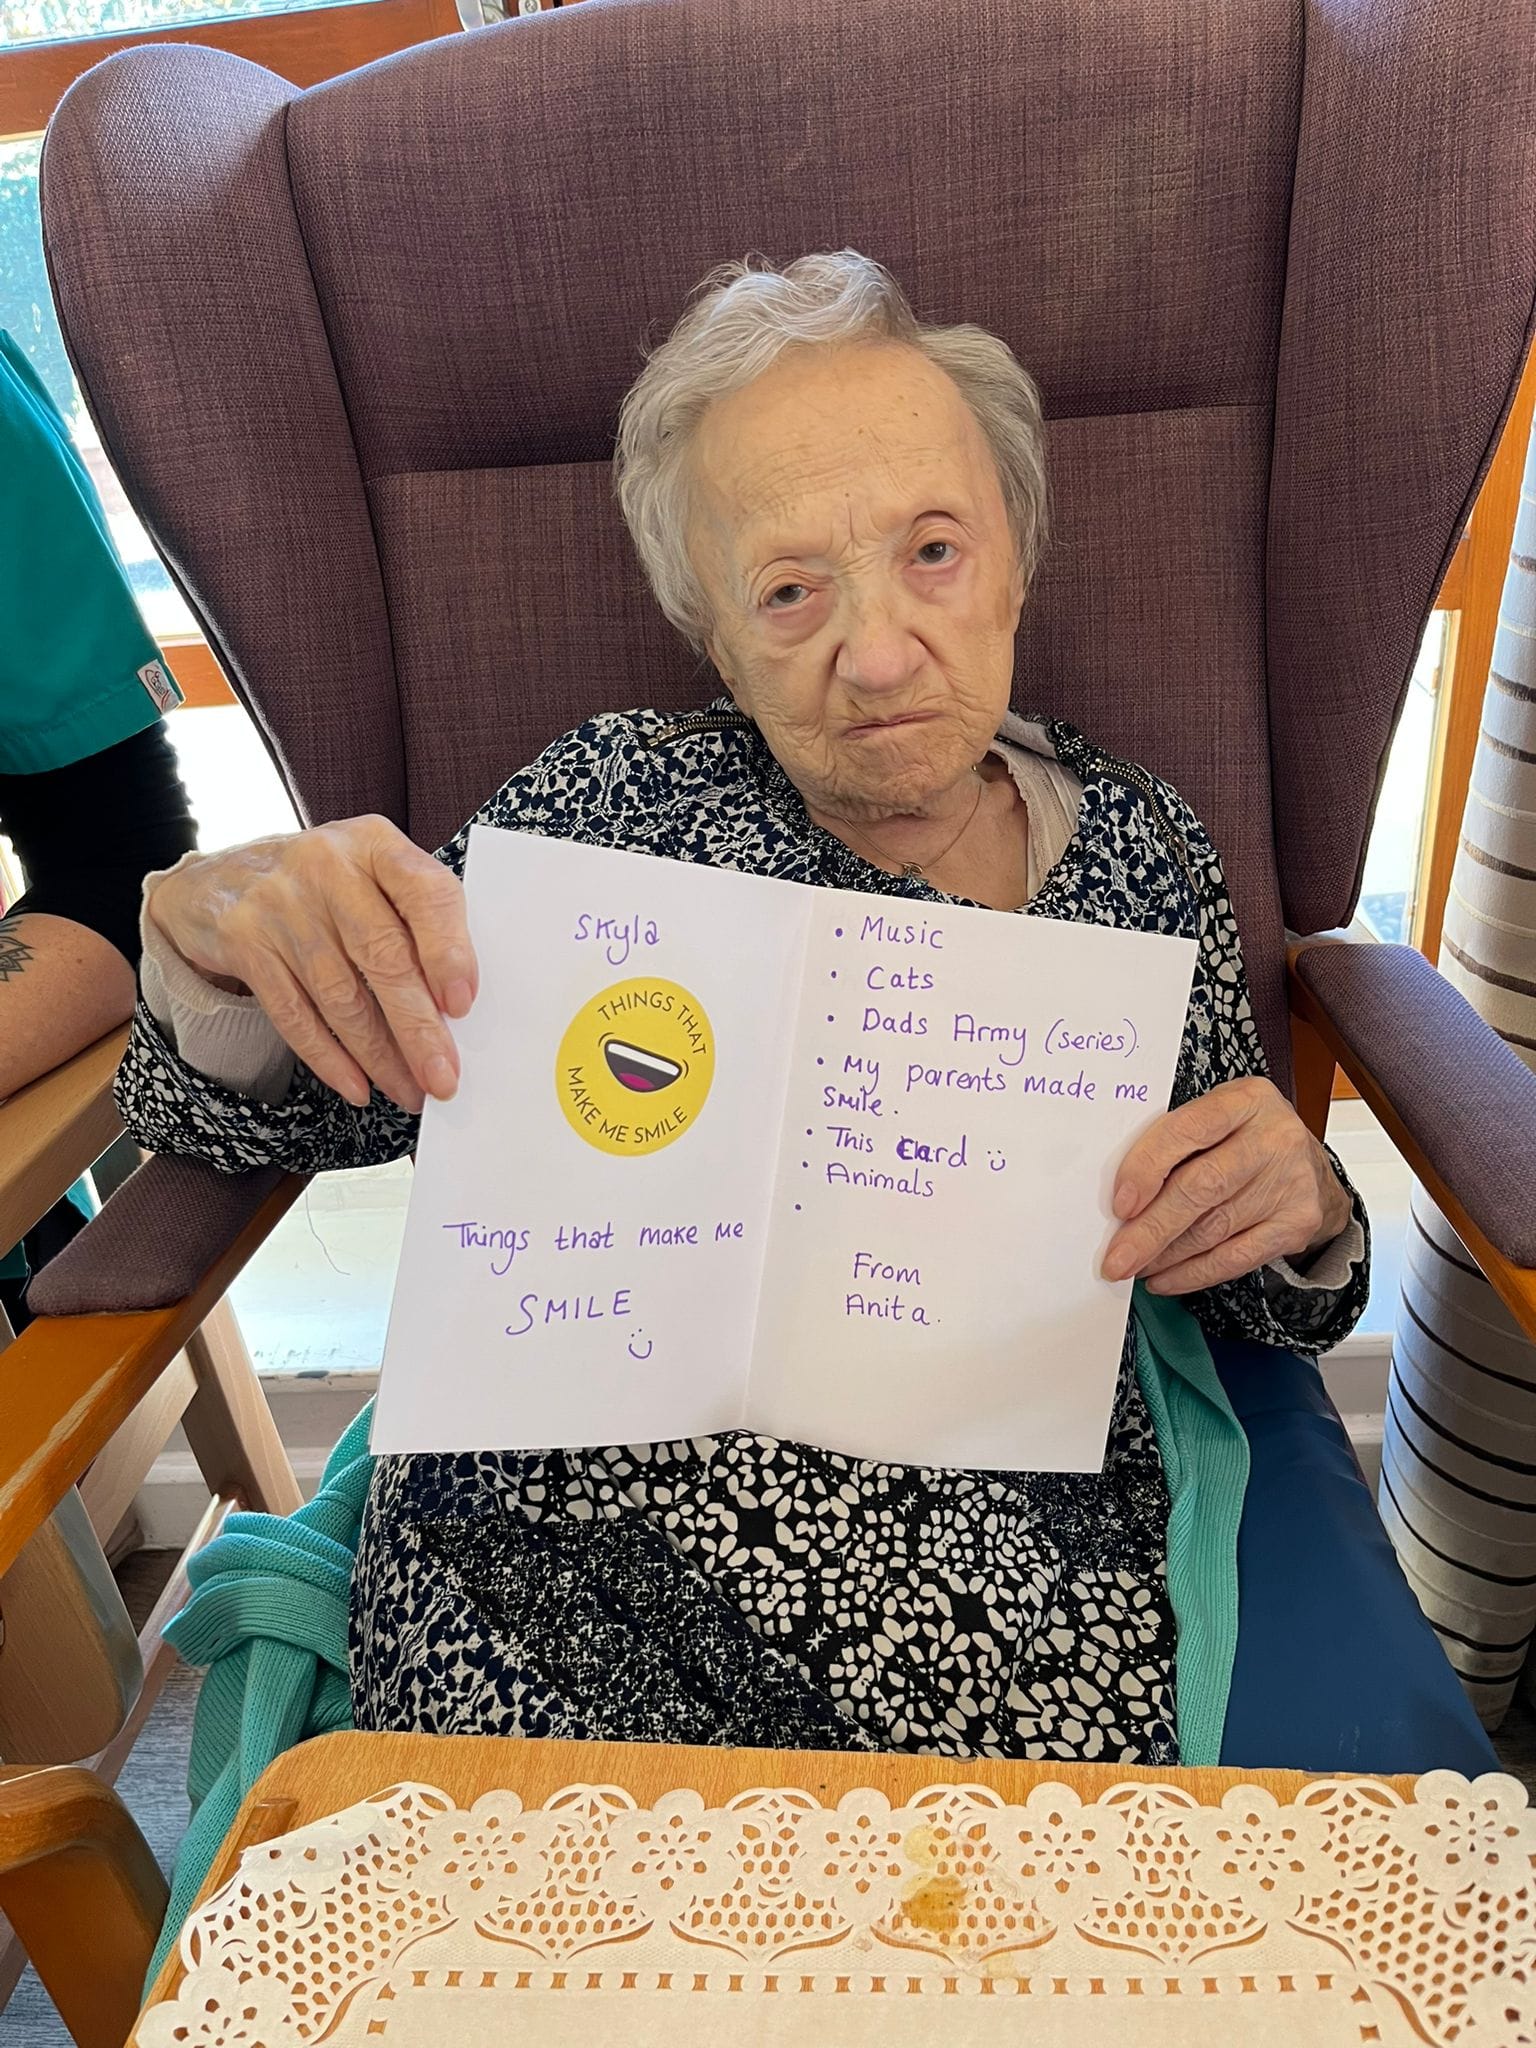 Skyla
THINGS THAT
MAKE ME SMILE
Things that make me
SMILE
• Music
• Cats
• Dads Army (series).
• My parents made me
smile.
• This card
• Animals
•
From
Anita.